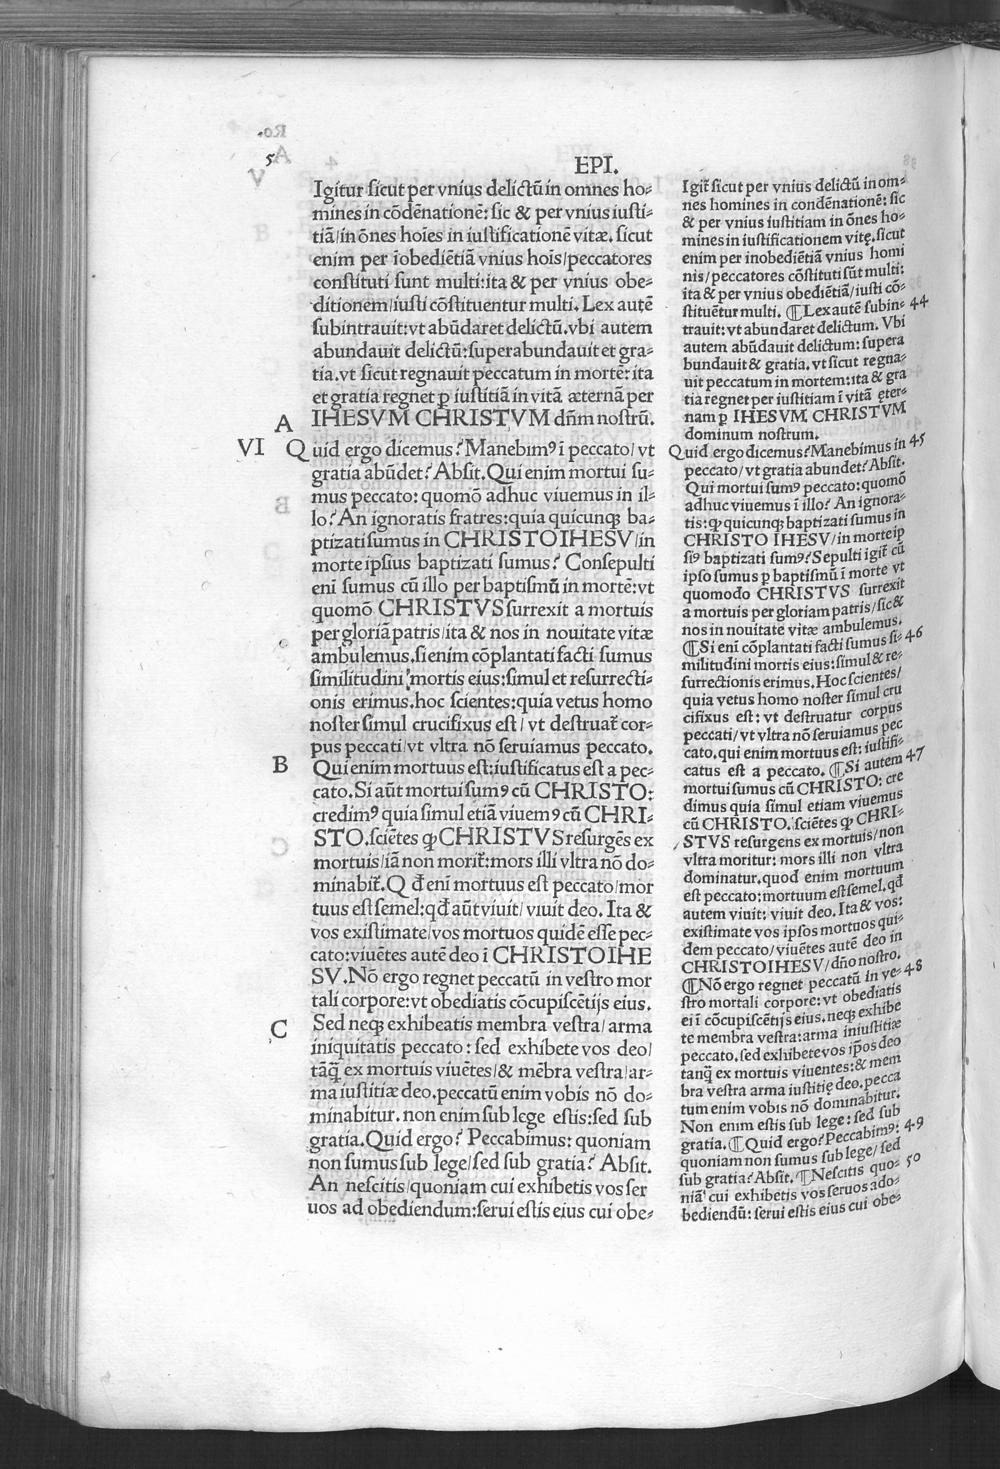 5
EPI.
Igitur ſicut per vnius delictū in omnes ho⸗
mines in cōdēnationē: ſic & per vnius iuſti⸗
tiā/in ōnes hoīes in iuſtificationē vitæ. ſicut
enim per īobediētiā vnius hoīs/peccatores
conſtituti ſunt multi: ita & per vnius obe⸗
ditionem/iuſti cōſtituentur multi. Lex autē
ſubintrauit: vt abūdaret delictū. vbi autem
abundauit delictū: ſuperabundauit et gra⸗
tia. vt ſicut regnauit peccatum in mortē: ita
et gratia regnet ꝑ iuſtitiā in vitā æternā per
IHESVM CHRISTVM dn̄m noſtrū.
A
VI Quid ergo dicemus? Manebimꝰ ī peccato/vt
gratia abūdet? Abſit. Qui enim mortui ſu⸗
mus peccato: quomō adhuc viuemus in il⸗
lo? An ignoratis fratres: quia quicunqꝫ ba⸗
ptizati ſumus in CHRISTO IHESV/in
morte ipſius baptizati ſumus? Conſepulti
enī ſumus cū illo per baptiſmū in mortē: vt
quomō CHRISTVS ſurrexit a mortuis
per gloriā patris/ita & nos in nouitate vitæ
ambulemus. ſi enim cōplantati facti ſumus
ſimilitudini mortis eius: ſimul et reſurrecti⸗
onis erimus. hoc ſcientes: quia vetus homo
noſter ſimul crucifixus eſt/vt deſtruat᷑ cor⸗
pus peccati/vt vltra nō ſeruiamus peccato.
B Qui enim mortuus eſt: iuſtificatus eſt a pec⸗
cato. Si aūt mortui ſumꝰ cū CHRISTO:
credimꝰ quia ſimul etiā viuemꝰ cū CHRI⸗
STO. ſciētes ꝙ CHRISTVS reſurgēs ex
mortuis/iā non morit᷑: mors illi vltra nō do⸗
minabit᷑. Qđ enī mortuus eſt peccato/mor
tuus eſt ſemel: qđ aūt viuit/viuit deo. Ita &
vos exiſtimate/vos mortuos quidē eſſe pec⸗
cato: viuētes autē deo ī CHRISTO IHE
SV. Nō ergo regnet peccatū in veſtro mor
tali corpore: vt obediatis cōcupiſcētijs eius.
C Sed neqꝫ exhibeatis membra veſtra/arma
iniquitatis peccato: ſed exhibete vos deo/
tāq̄ ex mortuis viuētes/& mēbra veſtra/ar⸗
ma iuſtitiæ deo. peccatū enim vobis nō do⸗
minabitur. non enim ſub lege eſtis: ſed ſub
gratia. Quid ergo? Peccabimus: quoniam
non ſumus ſub lege/ſed ſub gratia? Abſit.
An neſcitis/quoniam cui exhibetis vos ſer
uos ad obediendum: ſerui eſtis eius cui obe⸗
Igit᷑ ſicut per vnius delictū in om⸗
nes homines in condēnationē: ſic
& per vnius iuſtitiam in ōnes ho⸗
mines in iuſtificationem vitę. ſicut
enim per inobediētiā vnius homi
nis/peccatores cōſtituti ſūt multi:
ita & per vnius obediētiā/iuſti cō⸗
ſtituētur multi. ¶Lex autē ſubin⸗ 44
trauit: vt abundaret delictum. Vbi
autem abūdauit delictum: ſupera
bundauit & gratia. vt ſicut regna⸗
uit peccatum in mortem: ita & gra
tia regnet per iuſtitiam ī vitā ęter⸗
nam ꝑ IHESVM CHRISTVM
dominum noſtrum.
Quid ergo dicemus? Manebimus in 45
peccato/vt gratia abundet? Abſit.
Qui mortui ſumꝰ peccato: quomō
adhuc viuemus ī illo? An ignora⸗
tis: ꝙ quicunqꝫ baptizati ſumus in
CHRISTO IHESV/in morte ip
ſiꝰ baptizati ſumꝰ? Sepulti igit᷑ cū
ipſo ſumus ꝑ baptiſmū ī morte vt
quomodo CHRISTVS ſurrexit
a mortuis per gloriam patris/ſic &
nos in nouitate vitæ ambulemus.
¶Si enī cōplantati facti ſumus ſi⸗ 46
militudini mortis eius: ſimul & re⸗
ſurrectionis erimus. Hoc ſcientes/
quia vetus homo noſter ſimul cru
cifixus eſt: vt deſtruatur corpus
peccati/vt vltra nō ſeruiamus pec
cato. qui enim mortuus eſt: iuſtifi⸗
catus eſt a peccato. ¶Si autem 47
mortui ſumus cū CHRISTO: cre
dimus quia ſimul etiam viuemus
cū CHRISTO. ſciētes ꝙ CHRI⸗
STVS reſurgens ex mortuis/non
vltra moritur: mors illi non vltra
dominatur. quod enim mortuum
eſt peccato: mortuum eſt ſemel. qđ
autem viuit: viuit deo. Ita & vos:
exiſtimate vos ipſos mortuos qui⸗
dem peccato/viuētes autē deo in
CHRISTO IHESV/dn̄o noſtro.
¶Nō ergo regnet peccatū in ve⸗ 48
ſtro mortali corpore: vt obediatis
ei ī cōcupiſcētijs eius. neqꝫ exhibe
te membra veſtra: arma iniuſtitiæ
peccato. ſed exhibete vos ip̄os deo
tanq̄ ex mortuis viuentes: & mem
bra veſtra arma iuſtitię deo. pecca
tum enim vobis nō dominabitur.
Non enim eſtis ſub lege: ſed ſub
gratia. ¶Quid ergo? Peccabimꝰ: 49
quoniam non ſumus ſub lege/ſed
ſub gratia? Abſit. ¶Neſcitis quo⸗ 50
niā cui exhibetis vos ſeruos ado⸗
bediendū: ſerui eſtis eius cui obe⸗